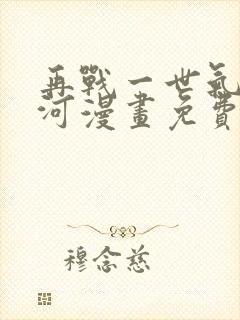 再戰一世氣
河漫畫免費
穆念慈